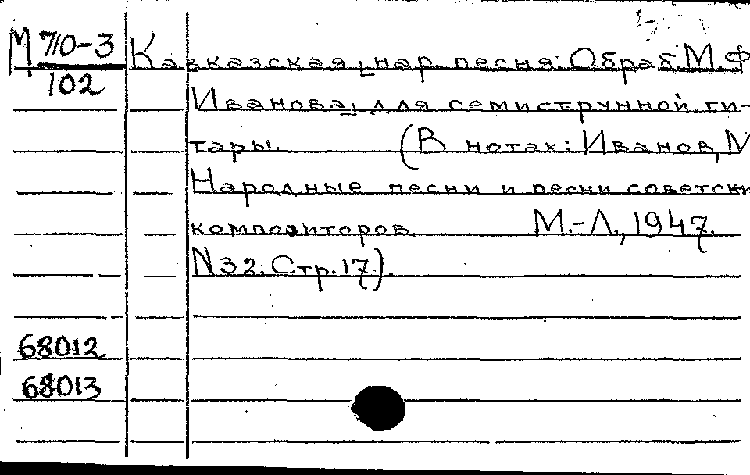 М 710-3 Кавказская нар. песня: Обраб. М.Ф.
102
Иванова для семиструнной ги-
тары. (В нотах: Иванов, М
Народные песни и песни советски
композиторов. М.-Л., 1947.
N32. Стр. 17).
68012
68013